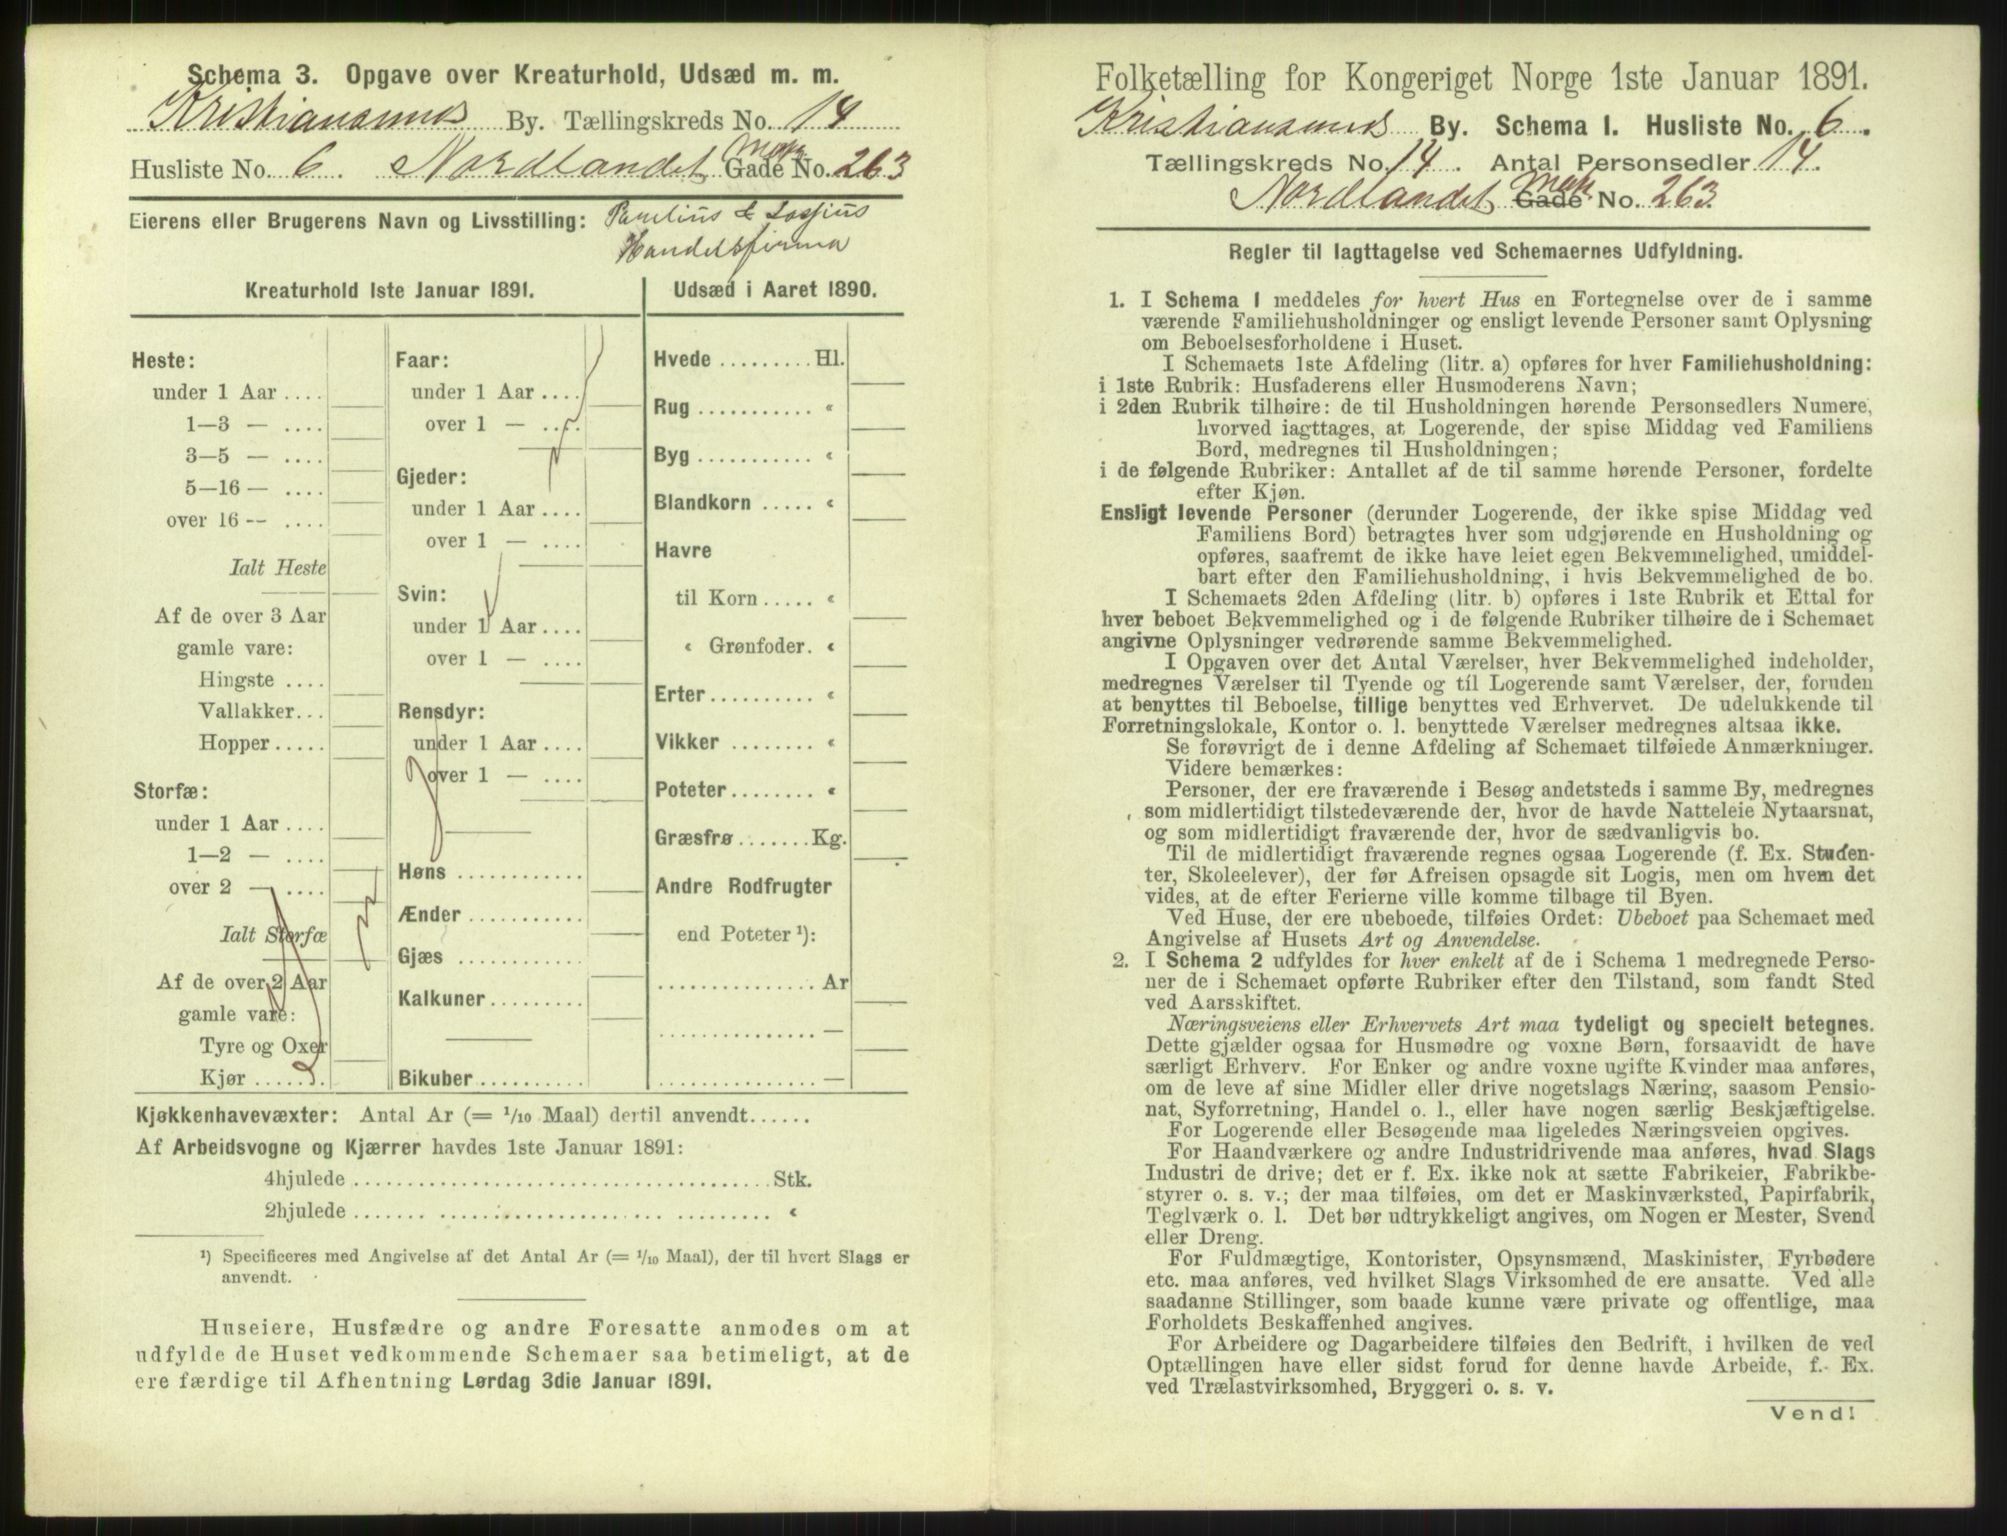 Schema 3. Opgave over Kreaturhold, Udsæd m. m.
Kristianssunds By. Tællingskreds No. 14
Husliste No. 6. Nordlandet Matr. Gade No. 263
Eierens eller Brugerens Navn og Livsstilling: & Lossius
Handelsfirma
Kreaturhold 1ste Januar 1891.
Heste:
under 1 Aar ....
1—3 — ....
3—5 — ....
5—16 — ....
over 16 -- ....
Ialt Heste
Af de over 3 Aar
gamle vare:
Hingste ....
Vallakker...
Hopper .....
Storfæ:
under 1 Aar ....
1—2 — ....
over 2 — ....
Ialt Storfæ
Af de over 2 Aar
gamle vare:
Tyre og Oxer
Kjør ......
Faar:
under 1 Aar ....
over 1 — ....
Gjeder:
under 1 Aar ....
over 1 — ....
Svin:
under 1 Aar ....
over 1 — ....
Rensdyr:
under 1 Aar ....
over 1 — ....
Høns ............
Ænder ...........
Gjæs ............
Kalkuner.........
Bikuber..........
Udsæd i Aaret 1890.
Hvede ......... Hl.
Rug ........... «
Byg ........... «
Blandkorn ..... «
Havre
til Korn..... «
« Grønfoder. «
Erter ......... «
Vikker ........ «
Poteter........ «
Græsfrø ....... Kg.
Andre Rodfrugter
end Poteter ¹):
............... Ar
............... —
............... —
Kjøkkenhavevæxter: Antal Ar (= 1/10 Maal) dertil anvendt......
Af Arbeidsvogne og Kjærrer havdes 1ste Januar 1891:
4hjulede ..................................... Stk.
2hjulede ..................................... «
¹) Specificeres med Angivelse af det Antal Ar (= 1/10 Maal), der til hvert Slags er
anvendt.
Huseiere, Husfædre og andre Foresatte anmodes om at
udfylde de Huset vedkommende Schemaer saa betimeligt, at de
ere færdige til Afhentning Lørdag 3die Januar 1891.
Folketælling for Kongeriget Norge 1ste Januar 1891.
Kristianssunds By. Schema I. Husliste No. 6.
Tællingskreds No. 14. Antal Personsedler 14.
Nordlandet Matr. Gade No. 263
Regler til Iagttagelse ved Schemaernes Udfyldning.
1. I Schema 1 meddeles for hvert Hus en Fortegnelse over de i samme
værende Familiehusholdninger og ensligt levende Personer samt Oplysning
om Beboelsesforholdene i Huset.
I Schemaets 1ste Afdeling (litr. a) opføres for hver Familiehusholdning:
i 1ste Rubrik: Husfaderens eller Husmoderens Navn;
i 2den Rubrik tilhøire: de til Husholdningen hørende Personsedlers Numere,
hvorved iagttages, at Logerende, der spise Middag ved Familiens
Bord, medregnes til Husholdningen;
i de følgende Rubriker: Antallet af de til samme hørende Personer, fordelte
efter Kjøn.
Ensligt levende Personer (derunder Logerende, der ikke spise Middag ved
Familiens Bord) betragtes hver som udgjørende en Husholdning og
opføres, saafremt de ikke have leiet egen Bekvemmelighed, umiddel-
bart efter den Familiehusholdning, i hvis Bekvemmelighed de bo.
I Schemaets 2den Afdeling (litr. b) opføres i 1ste Rubrik et Ettal for
hver beboet Bekvemmelighed og i de følgende Rubriker tilhøire de i Schemaet
angivne Oplysninger vedrørende samme Bekvemmelighed.
I Opgaven over det Antal Værelser, hver Bekvemmelighed indeholder,
medregnes Værelser til Tyende og til Logerende samt Værelser, der, foruden
at benyttes til Beboelse, tillige benyttes ved Erhvervet. De udelukkende til
Forretningslokale, Kontor o. l. benyttede Værelser medregnes altsaa ikke.
Se forøvrigt de i denne Afdeling af Schemaet tilføiede Anmærkninger.
Videre bemærkes:
Personer, der ere fraværende i Besøg andetsteds i samme By, medregnes
som midlertidigt tilstedeværende der, hvor de havde Natteleie Nytaarsnat,
og som midlertidigt fraværende der, hvor de sædvanligvis bo.
Til de midlertidigt fraværende regnes ogsaa Logerende (f. Ex. Studen-
ter, Skoleelever), der før Afreisen opsagde sit Logis, men om hvem det
vides, at de efter Ferierne ville komme tilbage til Byen.
Ved Huse, der ere ubeboede, tilføies Ordet: Ubeboet paa Schemaet med
Angivelse af Husets Art og Anvendelse.
2. I Schema 2 udfyldes for hver enkelt af de i Schema 1 medregnede Perso-
ner de i Schemaet opførte Rubriker efter den Tilstand, som fandt Sted
ved Aarsskiftet.
Næringsveiens eller Erhvervets Art maa tydeligt og specielt betegnes.
Dette gjælder ogsaa for Husmødre og voxne Børn, forsaavidt de have
særligt Erhverv. For Enker og andre voxne ugifte Kvinder maa anføres,
om de leve af sine Midler eller drive nogetslags Næring, saasom Pensio-
nat, Syforretning, Handel o. l., eller have nogen særlig Beskjæftigelse.
For Logerende eller Besøgende maa ligeledes Næringsveien opgives.
For Haandværkere og andre Industridrivende maa anføres, hvad Slags
Industri de drive; det er f. Ex. ikke nok at sætte Fabrikeier, Fabrikbe-
styrer o. s. v.; der maa tilføies, om det er Maskinværksted, Papirfabrik,
Teglværk o. l. Det bør udtrykkeligt angives, om Nogen er Mester, Svend
eller Dreng.
For Fuldmægtige, Kontorister, Opsynsmænd, Maskinister, Fyrbødere
etc. maa anføres, ved hvilket Slags Virksomhed de ere ansatte. Ved alle
saadanne Stillinger, som baade kunne være private og offentlige, maa
Forholdets Beskaffenhed angives.
For Arbeidere og Dagarbeidere tilføies den Bedrift, i hvilken de ved
Optællingen have eller sidst forud for denne havde Arbeide, f. Ex.
ved Trælastvirksomhed, Bryggeri o. s. v.
Vend!